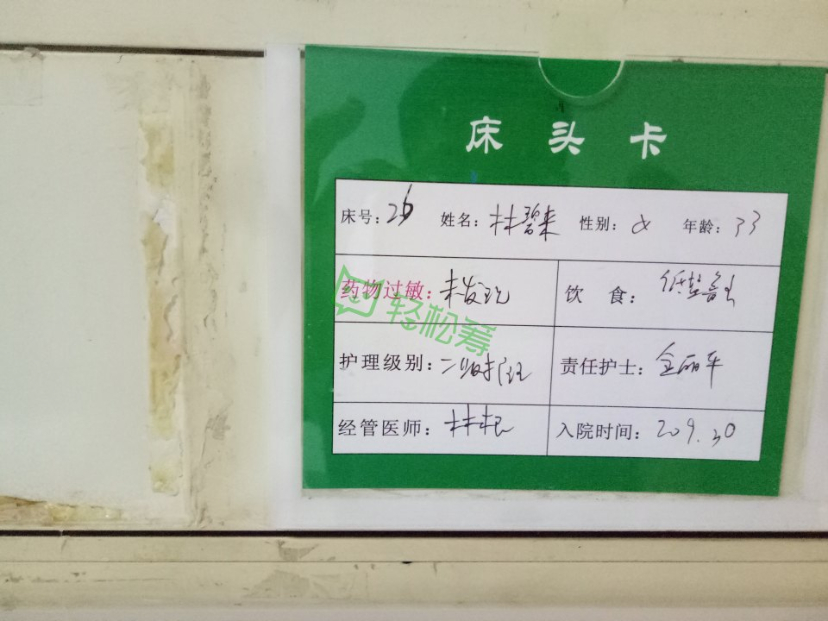 床头卡
床号: 26 姓名: 林碧来 性别: 女 年龄: 33
药物过敏: 未发现 饮 食: 低盐普食
轻松筹
护理级别: 二级 责任护士: 金丽华
经管医师: 林 入院时间: 209.30